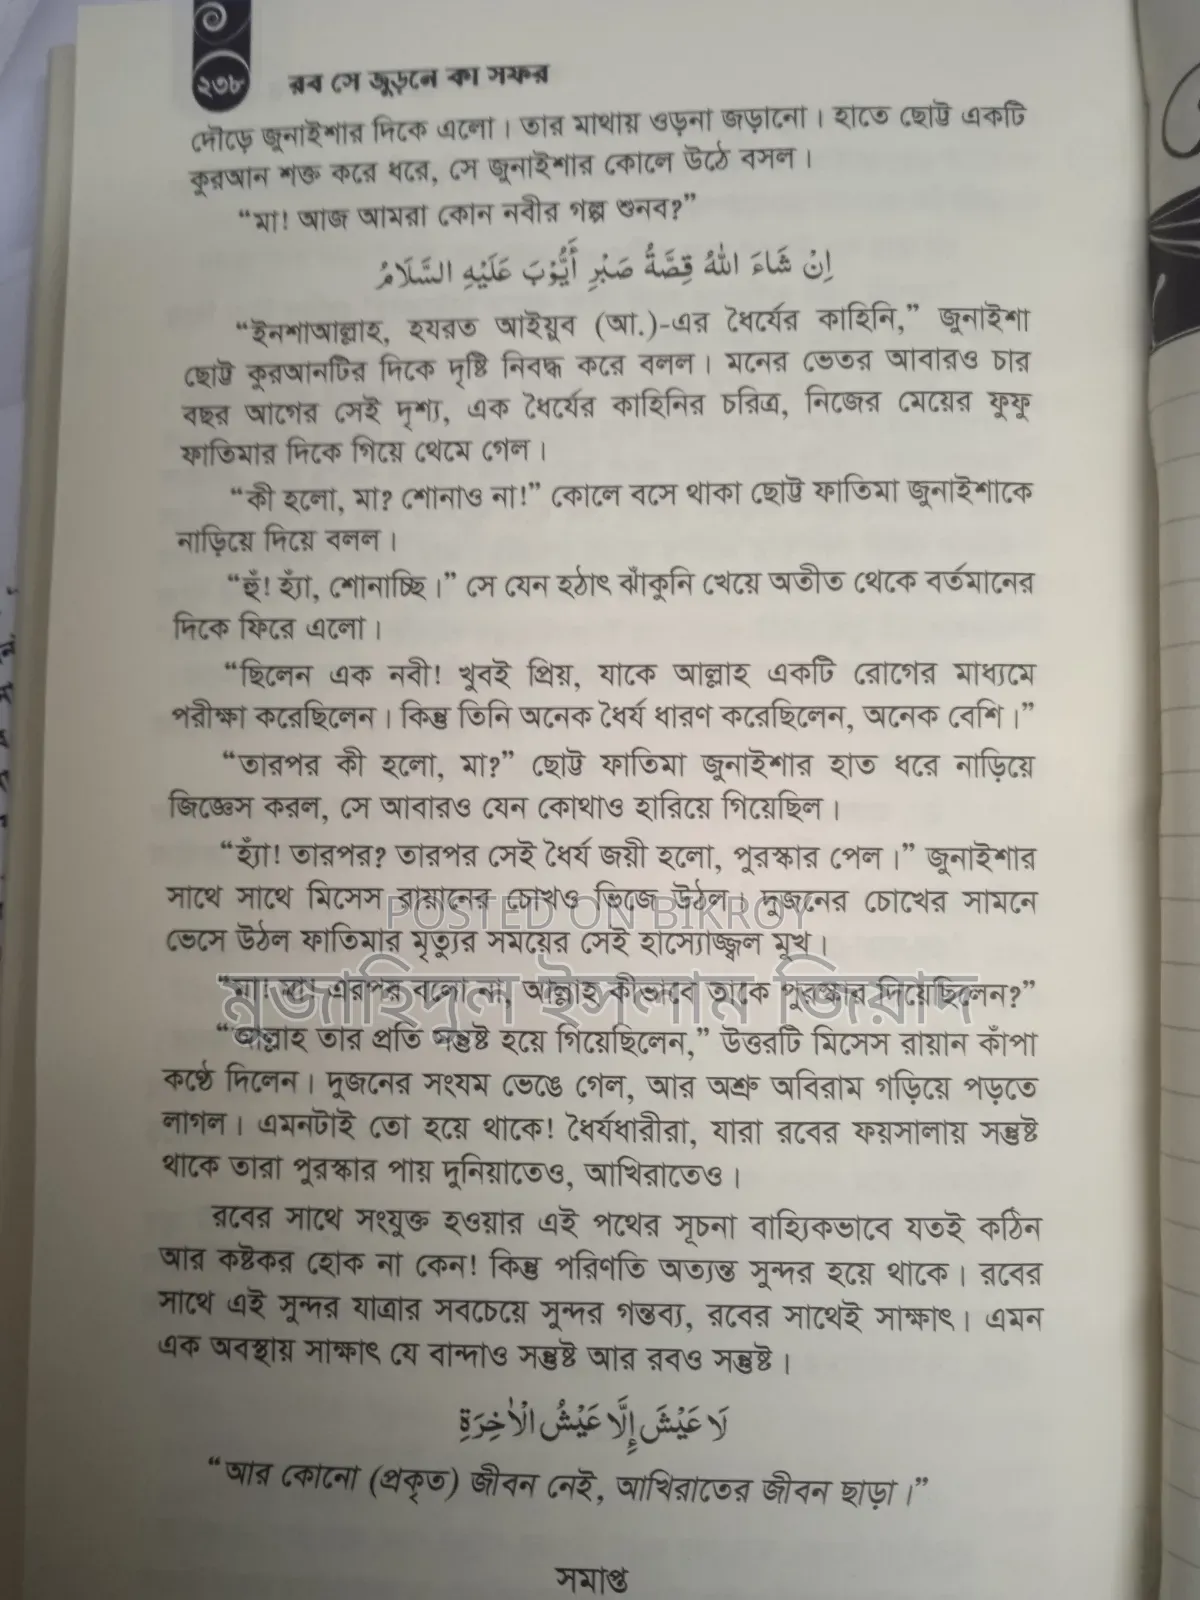 ২৩৮
রব সে জুড়নে কা সফর
দৌড়ে জুনাইশার দিকে এলো। তার মাথায় ওড়না জড়ানো। হাতে ছোট্ট একটি
কুরআন শক্ত করে ধরে, সে জুনাইশার কোলে উঠে বসল।
“মা! আজ আমরা কোন নবীর গল্প শুনব?”
اِنْ شَاءَ اللهُ قِصَّةُ صَبْرِ أَيُّوْبَ عَلَيْهِ السَّلَامُ
“ইনশাআল্লাহ, হযরত আইয়ুব (আ.)-এর ধৈর্যের কাহিনি,” জুনাইশা
ছোট্ট কুরআনটির দিকে দৃষ্টি নিবদ্ধ করে বলল। মনের ভেতর আবারও চার
বছর আগের সেই দৃশ্য, এক ধৈর্যের কাহিনির চরিত্র, নিজের মেয়ের ফুফু
ফাতিমার দিকে গিয়ে থেমে গেল।
“কী হলো, মা? শোনাও না!” কোলে বসে থাকা ছোট্ট ফাতিমা জুনাইশাকে
নাড়িয়ে দিয়ে বলল।
“হুঁ! হ্যাঁ, শোনাচ্ছি।” সে যেন হঠাৎ ঝাঁকুনি খেয়ে অতীত থেকে বর্তমানের
দিকে ফিরে এলো।
“ছিলেন এক নবী! খুবই প্রিয়, যাকে আল্লাহ একটি রোগের মাধ্যমে
পরীক্ষা করেছিলেন। কিন্তু তিনি অনেক ধৈর্য ধারণ করেছিলেন, অনেক বেশি।”
“তারপর কী হলো, মা?” ছোট্ট ফাতিমা জুনাইশার হাত ধরে নাড়িয়ে
জিজ্ঞেস করল, সে আবারও যেন কোথাও হারিয়ে গিয়েছিল।
“হ্যাঁ! তারপর? তারপর সেই ধৈর্য জয়ী হলো, পুরস্কার পেল।” জুনাইশার
সাথে সাথে মিসেস রায়ানের চোখও ভিজে উঠল। দুজনের চোখের সামনে
POSTED ON BIKROY
ভেসে উঠল ফাতিমার মৃত্যুর সময়ের সেই হাস্যোজ্জ্বল মুখ।
“মা! মা! এরপর বলো না, আল্লাহ কীভাবে তাকে পুরস্কার দিয়েছিলেন?”
মুজাহিদুল ইসলাম জিয়াদ
“আল্লাহ তার প্রতি সন্তুষ্ট হয়ে গিয়েছিলেন,” উত্তরটি মিসেস রায়ান কাঁপা
কণ্ঠে দিলেন। দুজনের সংযম ভেঙে গেল, আর অশ্রু অবিরাম গড়িয়ে পড়তে
লাগল। এমনটাই তো হয়ে থাকে! ধৈর্যধারীরা, যারা রবের ফয়সালায় সন্তুষ্ট
থাকে তারা পুরস্কার পায় দুনিয়াতেও, আখিরাতেও।
রবের সাথে সংযুক্ত হওয়ার এই পথের সূচনা বাহ্যিকভাবে যতই কঠিন
আর কষ্টকর হোক না কেন! কিন্তু পরিণতি অত্যন্ত সুন্দর হয়ে থাকে। রবের
সাথে এই সুন্দর যাত্রার সবচেয়ে সুন্দর গন্তব্য, রবের সাথেই সাক্ষাৎ। এমন
এক অবস্থায় সাক্ষাৎ যে বান্দাও সন্তুষ্ট আর রবও সন্তুষ্ট।
لَا عَيْشَ إِلَّا عَيْشُ الْاٰخِرَةِ
“আর কোনো (প্রকৃত) জীবন নেই, আখিরাতের জীবন ছাড়া।”
সমাপ্ত